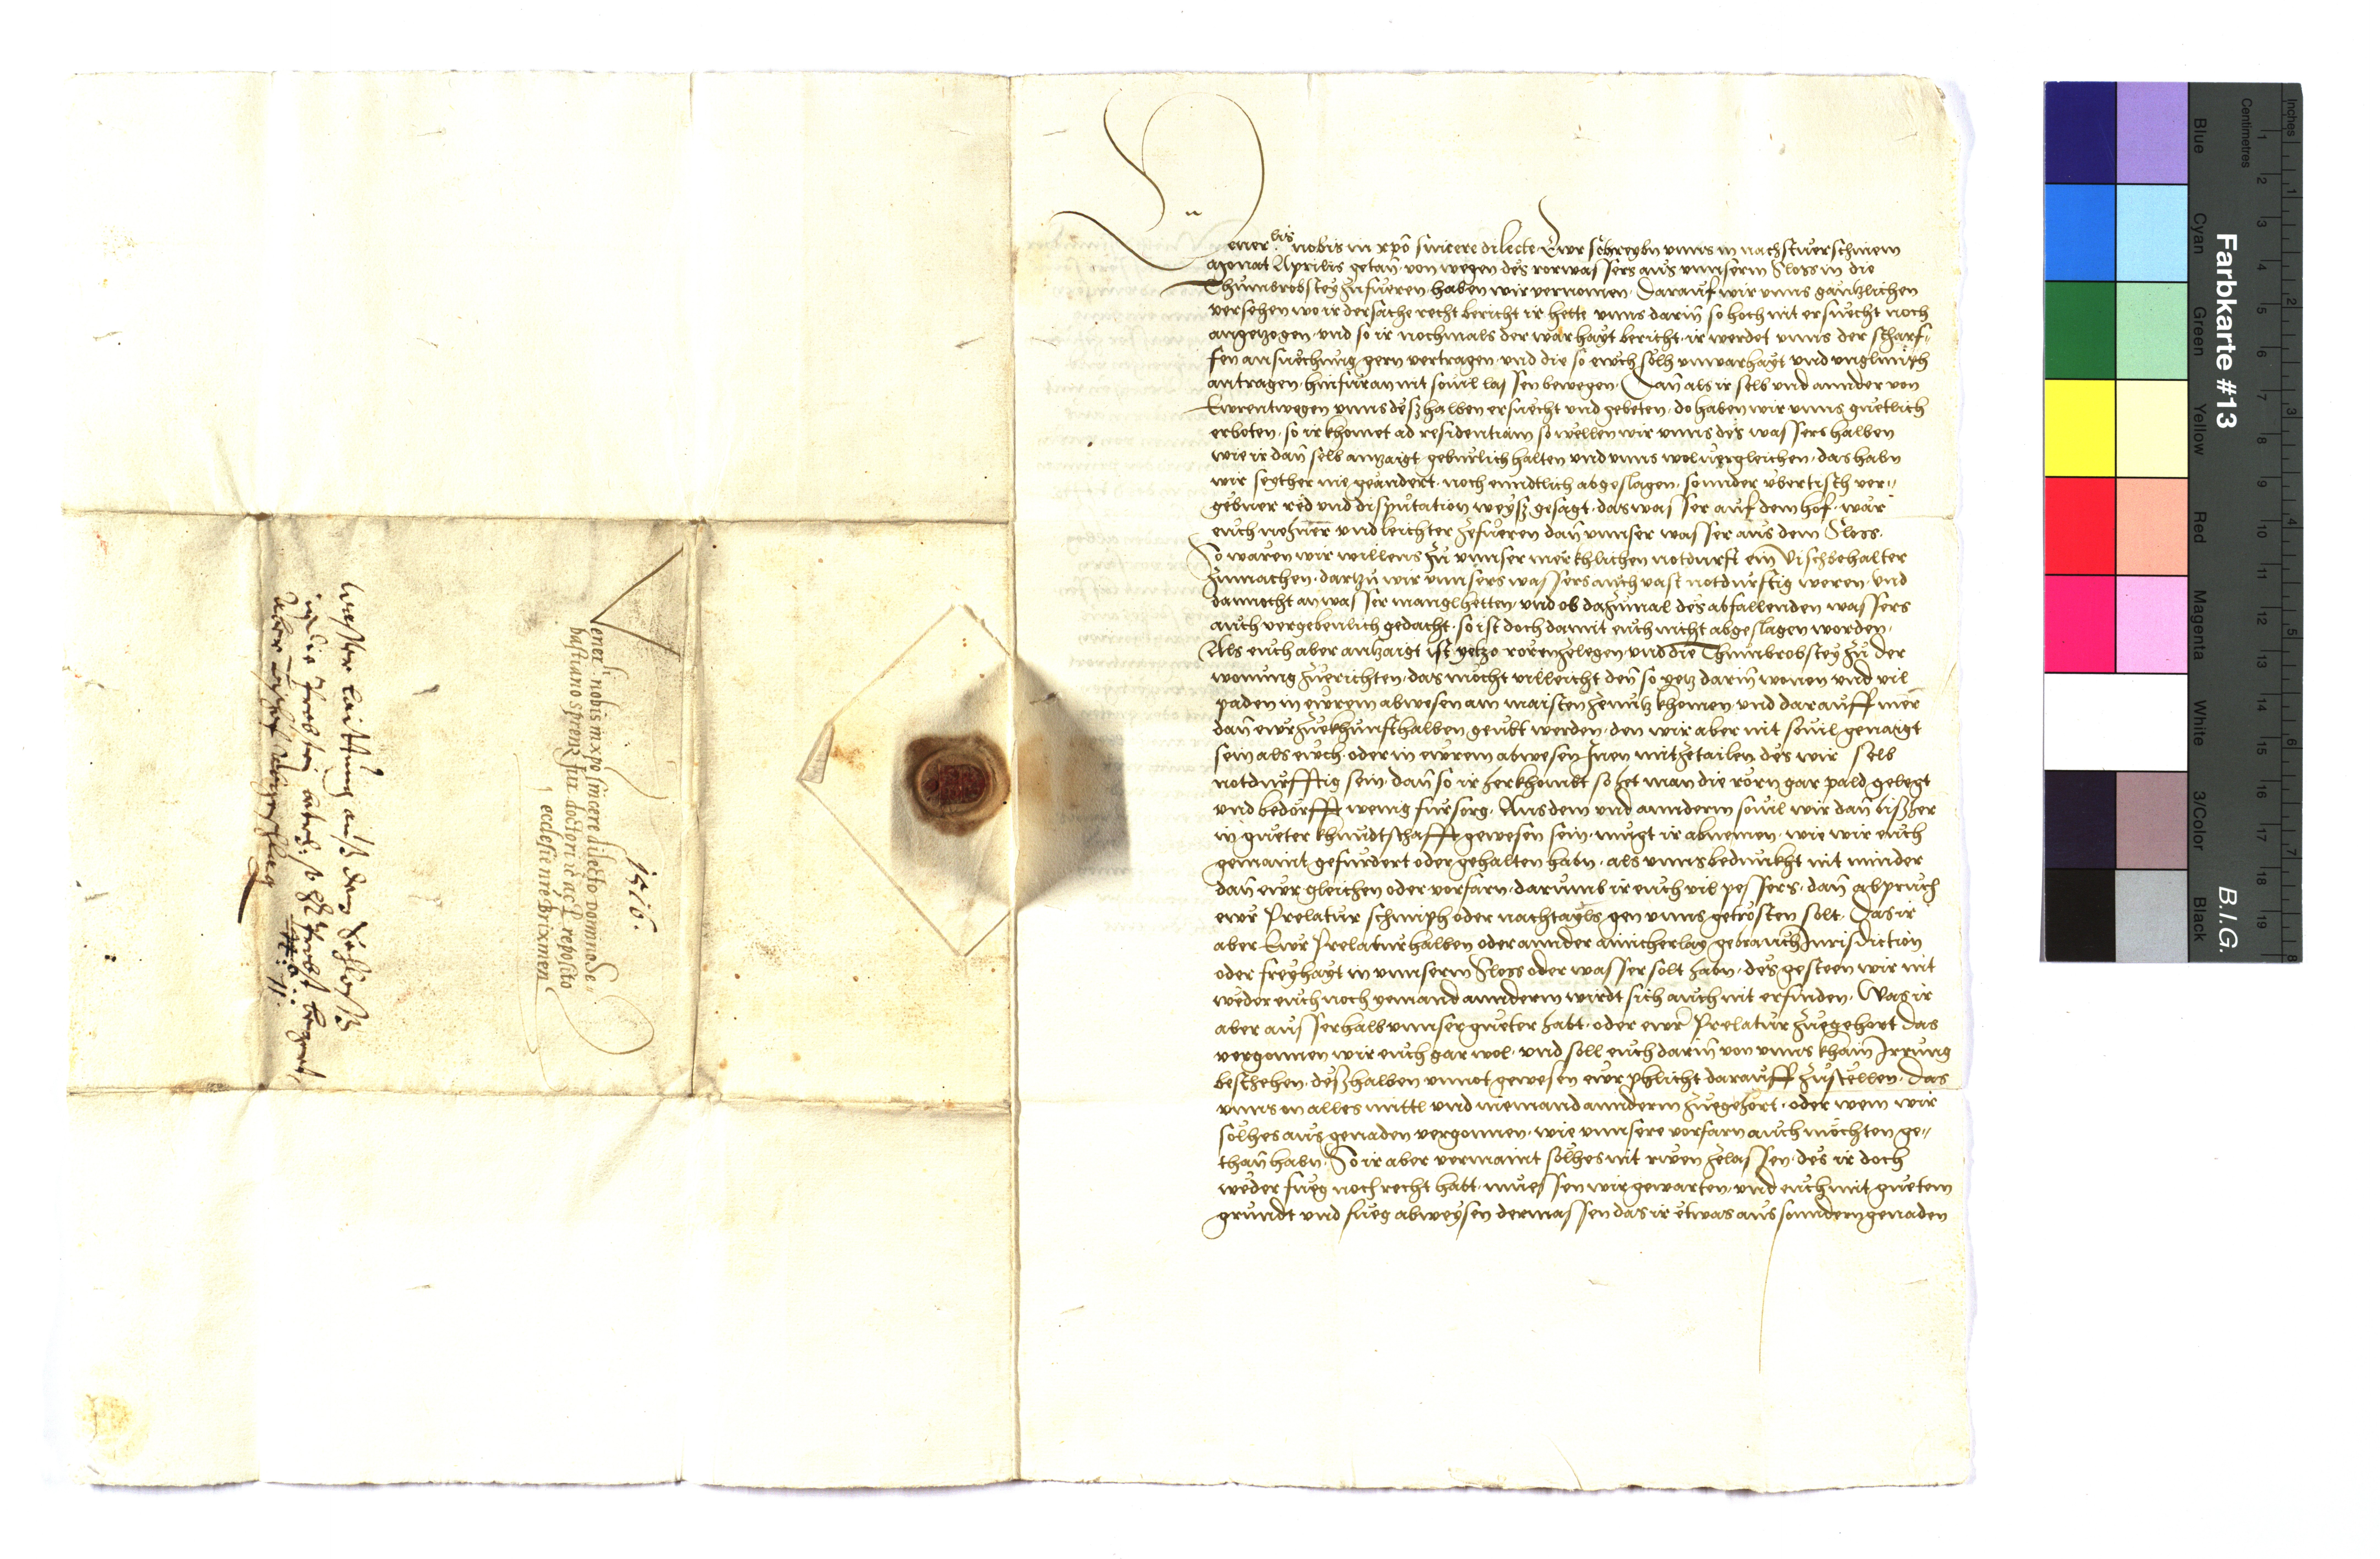 Venerbis nobis in xpo sincere dilecte. Ewr schreybn vnns in nachstuerschinem
Monat Aprilis getan, von wegen des rorwassers aus vnnserm Sloss in die
Thumbrobstey zufueren, haben wir vernomen. Darauf wir vnns gantzlichen
versehen wo ir der sache recht bericht ir hette vnns darin so hoch nit ersuecht noch
angezogen. vnd so ir nochmals der warhayt bericht, ir werdet vnns der scharf-
fen ansuechung gern vertragen. vnd die so euch solh vnwarhayt vnd vnglimph
antragen, hinfuran nit souil lassen bewegen. Dan als ir selb vnd annder von
Ewrentwegen vnns deßhalben ersuecht vnd gebeten, do haben wir vnns guetlich
erboten, so ir khomet ad residentiam so wellen wir vnns des wassers halben
wie ir dan selb antzaigt geburlich halten vnd vnns wol vergleichen, das habn
wir seyther nie geandert, noch enndtlich abgeslagen, sonnder vbertisch ver-
gebner red vnd disputation weyß gesagt, das wasser auf dem hof, war
euch nehner vnd leichter zefueren dan vnnser wasser aus dem Sloss.
So waren wir willens zu vnnser merkhlichen notdurft ein Vischbehalter
zumachen, dartzu wir vnnsers wassers auch vast notdurftig weren, vnd
dannocht an wasser mangl hetten, vnd ob dazumal des abfallenden wassers
auch vergebenlich gedacht, so ist doch damit euch nicht abgeslagen worden.
Als euch aber antzaigt ist yetzo roren zelegen vnd die Thumbrobstey zu der
wonung zuerichten, das mocht villeicht den so yetz darin wonen vnd vil
paden in ewrem abwesen am maisten zenutz khomen, vnd darauff mer
dan ewr zuekhunfft halben geubt werden, den wir aber nit souil genaigt
sein als euch, oder in ewrem abwesen Inen mitzetailen des wir selb
notdurfftig sein, dan so ir herkhombt so het man die rorn gar pald gelegt
vnd bedorfft wenig fursorg. Aus dem vnd annderm souil wir dan bißher
in gueter khundtschafft gewesen sein, mugt ir abnemen, wie wir euch
gemaint gefurdert oder gehalten habn, als vnns bedunkht nit minder
dan ewr gleichen oder vorfarn, darumb ir euch vil pessers, dan abpruch
ewr Prelatur schmiph oder nachtayls gen vnns getrosten solt. Das ir
aber Ewr Prelatur halben oder annder ainicherlay gebrauch Jurisdiction
oder freyhayt in vnnserm Sloss oder wasser solt habn, des gesteen wir nit
weder euch noch yemand annderm wirdt sich auch nit erfinden. Was ir
aber ausserhalb vnnser gueter habt, oder ewr Prelatur zuegehort das
vergonnen wir euch gar wol, vnd soll euch darin von vnns khain Irrung
beschehen, deßhalben vnnot gewesen ewr phlicht darauff zustellen, das
vnns on alles mittl vnd niemand annderm zuegehort, oder wem wir
solhes aus genaden vergonnen, wie vnnsere vorfarn auch mochten ge-
than habn. So ir aber vermaint solhes nit ruen zelassen, des ir doch
weder fueg noch recht habt, muessen wir gewarten, vnd euch mit guetem
grundt vnd fueg abweysen dermassen das ir etwas aus sonndern genaden
1516.
Vener nobis in xpo sincere dilecto Domino Se-
bastiano Sprentz iur. doctori ac Preposito
ecclesie nre Brixinen
Wasser laittung auß dem Schloss
in die Probstei